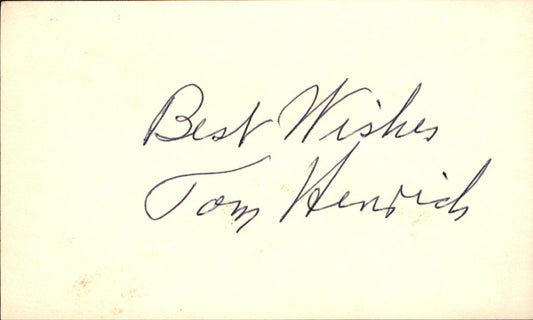 Best Wishes
Tom Henrich